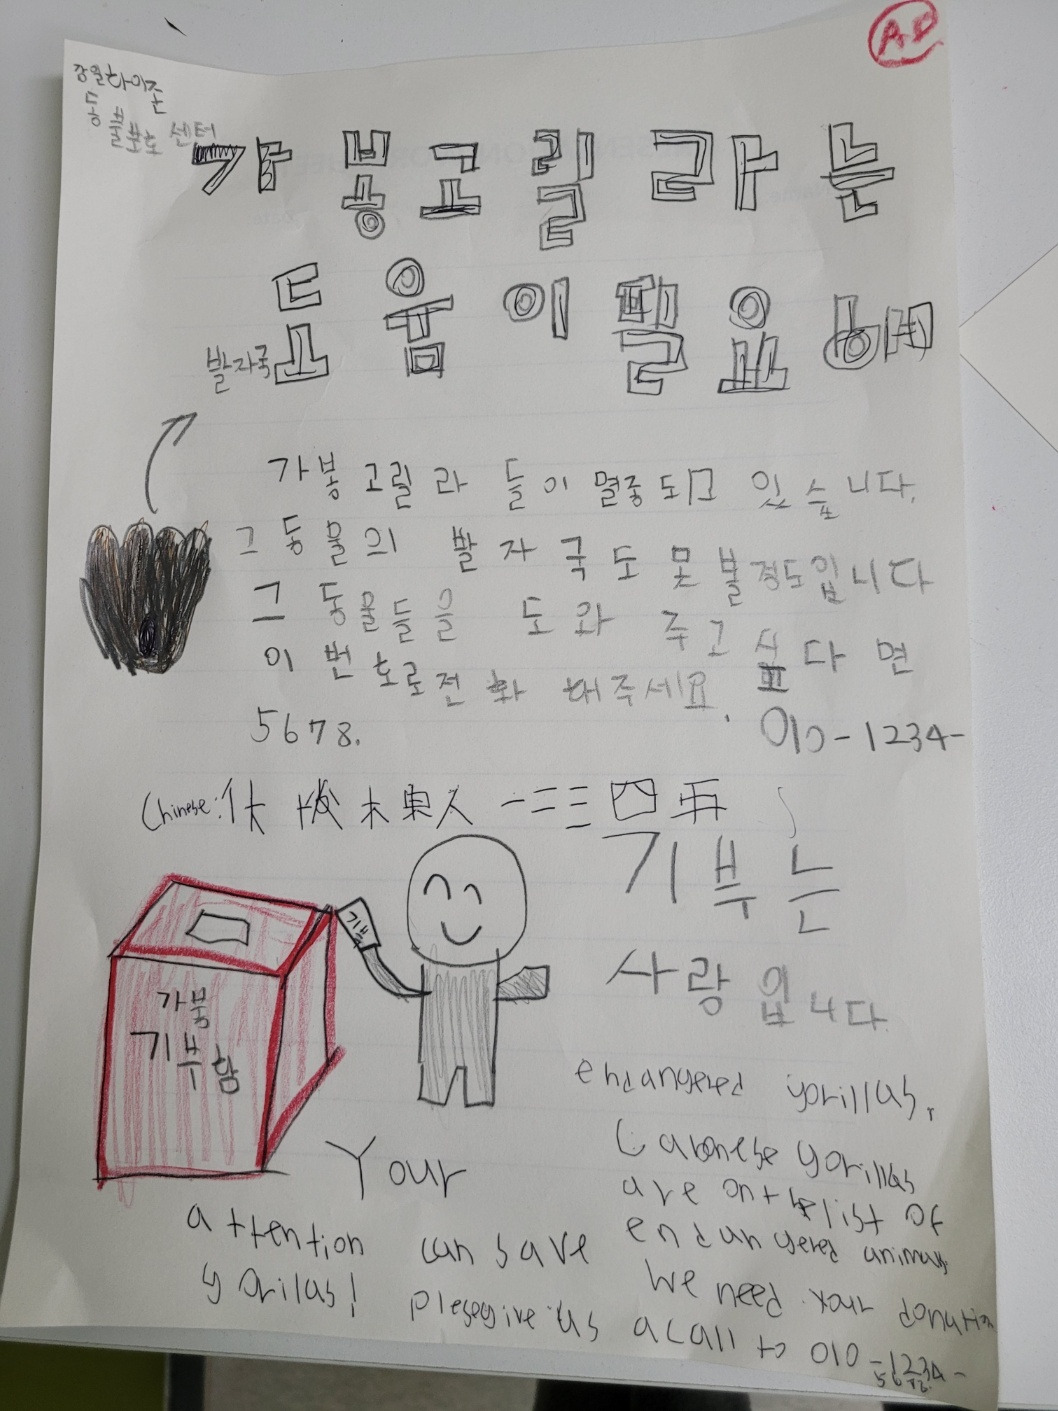 AD
강원하이존
동물보호 센터
가봉고릴라는
도움이필요해
발자국
가봉 고릴라 들이 멸종되고 있습니다.
그 동물의 발자국도 못 볼정도입니다
그 동물들을 도와 주고 싶다면
이 번호로전화 해주세요. 010-1234-
5678.
Chinese: 休 木 東人 一二三 四
기부는
사랑입니다
기부
가봉
기부함
endangered gorillas.
Gabonese gorillas
are on the list of
endangered animals
We need your donation
Your
attention can save
gorilas!
plese give us a call to 010-1234-
5678.